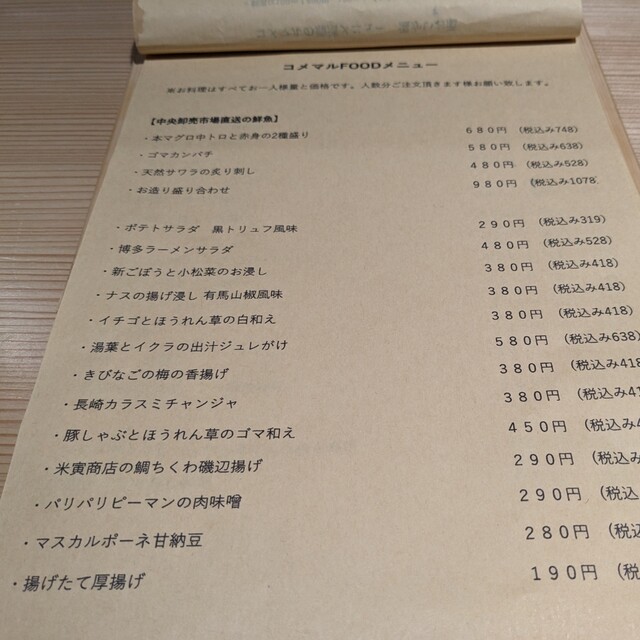 コメマルFOODメニュー
※お料理はすべてお一人様量と価格です。人数分ご注文頂きます様お願い致します。
【中央卸売市場直送の鮮魚】
・本マグロ中トロと赤身の2種盛り 680円 (税込み748)
・ゴマカンパチ 580円 (税込み638)
・天然サワラの炙り刺し 480円 (税込み528)
・お造り盛り合わせ 980円 (税込み1078)
・ポテトサラダ 黒トリュフ風味 290円 (税込み319)
・博多ラーメンサラダ 480円 (税込み528)
・新ごぼうと小松菜のお浸し 380円 (税込み418)
・ナスの揚げ浸し 有馬山椒風味 380円 (税込み418)
・イチゴとほうれん草の白和え 380円 (税込み418)
・湯葉とイクラの出汁ジュレがけ 580円 (税込み638)
・きびなごの梅の香揚げ 380円 (税込み418
・長崎カラスミチャンジャ 380円 (税込み41
・豚しゃぶとほうれん草のゴマ和え 450円 (税込み4
・米寅商店の鯛ちくわ磯辺揚げ 290円 (税込み
・パリパリピーマンの肉味噌 290円 (税込
・マスカルポーネ甘納豆 280円 (税込
・揚げたて厚揚げ 190円 (税